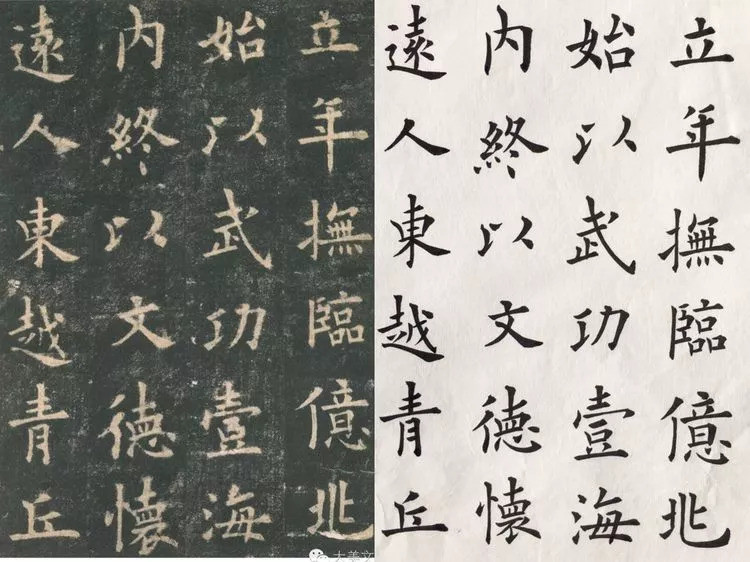 立年撫臨億兆
始以武功壹海
內終以文德懷
遠人東越青丘
立年撫臨億兆
始以武功壹海
內終以文德懷
遠人東越青丘